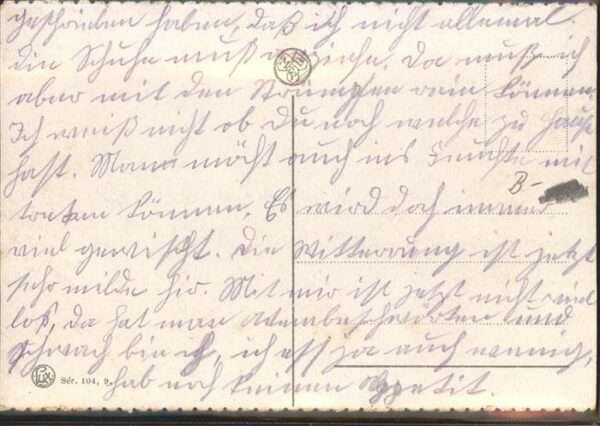 geschrieben haben, daß ich nicht allemal
die Schuhe muß ziehe. Da muß ich
aber mit den Strumpfen rein können.
Ich weiß nicht ob Du noch welche zu Hause
hast. Mann möcht auch ins mit
treten können. Es wird doch immer
viel gewischt. Die Witterrung ist jetzt
sehr milde hir. Mit mir ist jetzt nicht viel
los, da hat man und
schwach bin ich, ich ess ja auch wenig,
hab noch keinen Appetit.
B-
Sér. 104, 9.